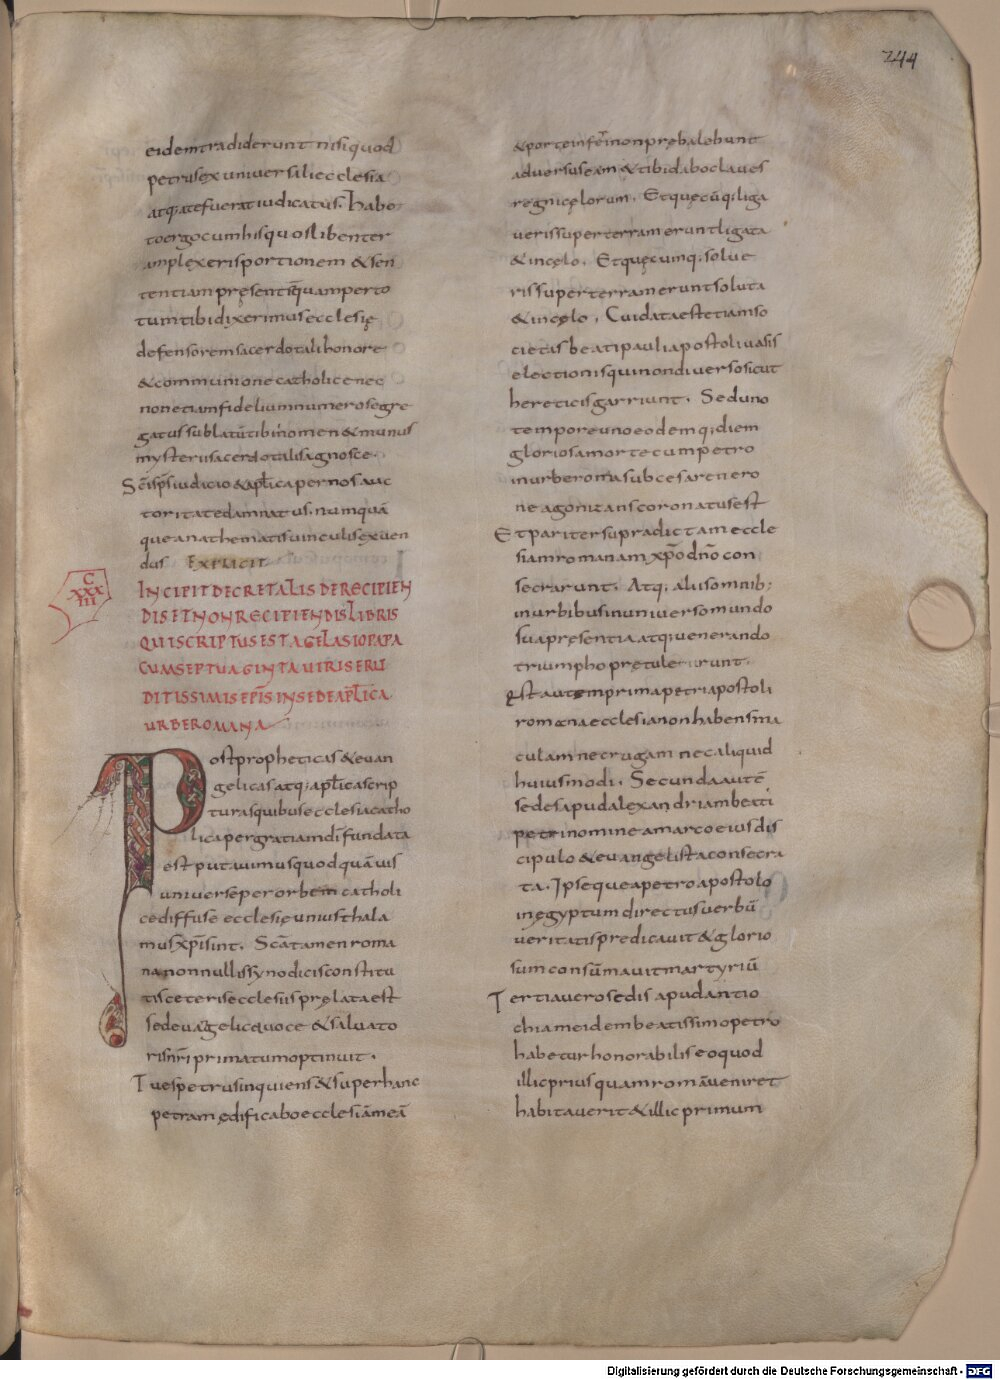 244
eidemtradiderunt nisi quod
petrus ex universali ecclesia
atq; ate fuerat iudicatus. Habe
toergo cum his quos libenter
amplexeris portionem & sen
tentiam presentē quam perto
tum tibi dixerimus ecclesię
defensorem sacerdotali honore
& communione catholice nec
non etiam fidelium numero segre
gatus sublatū tibi nomen & munus
mysterii sacerdotalis agnosce.
Sc̄i sp̄s iudicio & apłica per nos auc
toritate damnatus. numquā
que anathematis uinculis exuen
dus EXPLICIT
C
XXX
III
INCIPIT DECRETALIS DE RECIPIEN
DIS ET NON RECIPIENDIS LIBRIS
QUI SCRIPTUS EST A GELASIO PAPA
CUM SEPTUAGINTA UIRIS ERU
DITISSIMIS EPĪS IN SEDE APŁICA
URBE ROMANA
Post propheticas & euan
gelicas atq; apłicas crip
turas quibus ecclesia catho
lica per gratiam dī fundata
est putauimus quod quāuis
uniuersę per orbem catholi
cę diffusę ecclesię unius thala
mus xp̄i sint. Scā tamen roma
na non nullis synodicis constitu
tis ceteris ecclesiis prelata est
sed euāgelica uoce & saluato
ris nr̄i primatum optinuit.
Tu es petrus inquiens & super hanc
petram ędificabo ecclesiā meā
& porte inferi non preualebunt
aduersus eam & tibi dabo claues
regni cęlorum. Et quęcūq; liga
ueris super terram erunt ligata
& in cęlo. Et quęcumq; solue
ris super terram erunt soluta
& in cęlo. Cui data est etiam so
cietas beati pauli apostoli uasis
electionis qui non diuerso sicut
heretici garriunt. Sed uno
tempore uno eodemq; diem
gloriosa morte cum petro
in urbe roma sub cesare nero
ne agonizans coronatus est
Et pariter supradictam eccle
siam romanam xp̄o dn̄o con
secrarunt. Atq; aliis omnib;
in urbibus in uniuerso mundo
sua presentia atq; uenerando
triumpho pretulerunt.
Est autem prima petri apostoli
romana ecclesia non habens ma
culam nec rugam nec aliquid
huiusmodi. Secunda autē
sedes apud alexandriam beati
petri nomine a marco eius dis
cipulo & euangelista consecra
ta. Ipseque a petro apostolo
in ęgyptum directus uerbū
ueritatis predicauit & glorio
sum consūmauit martyriū
Tertia uero sedis apud antio
chiam eidem beatissimo petro
habetur honorabilis eo quod
illic prius quam romā ueniret
habitauerit & illic primum
Digitalisierung gefördert durch die Deutsche Forschungsgemeinschaft - DFG